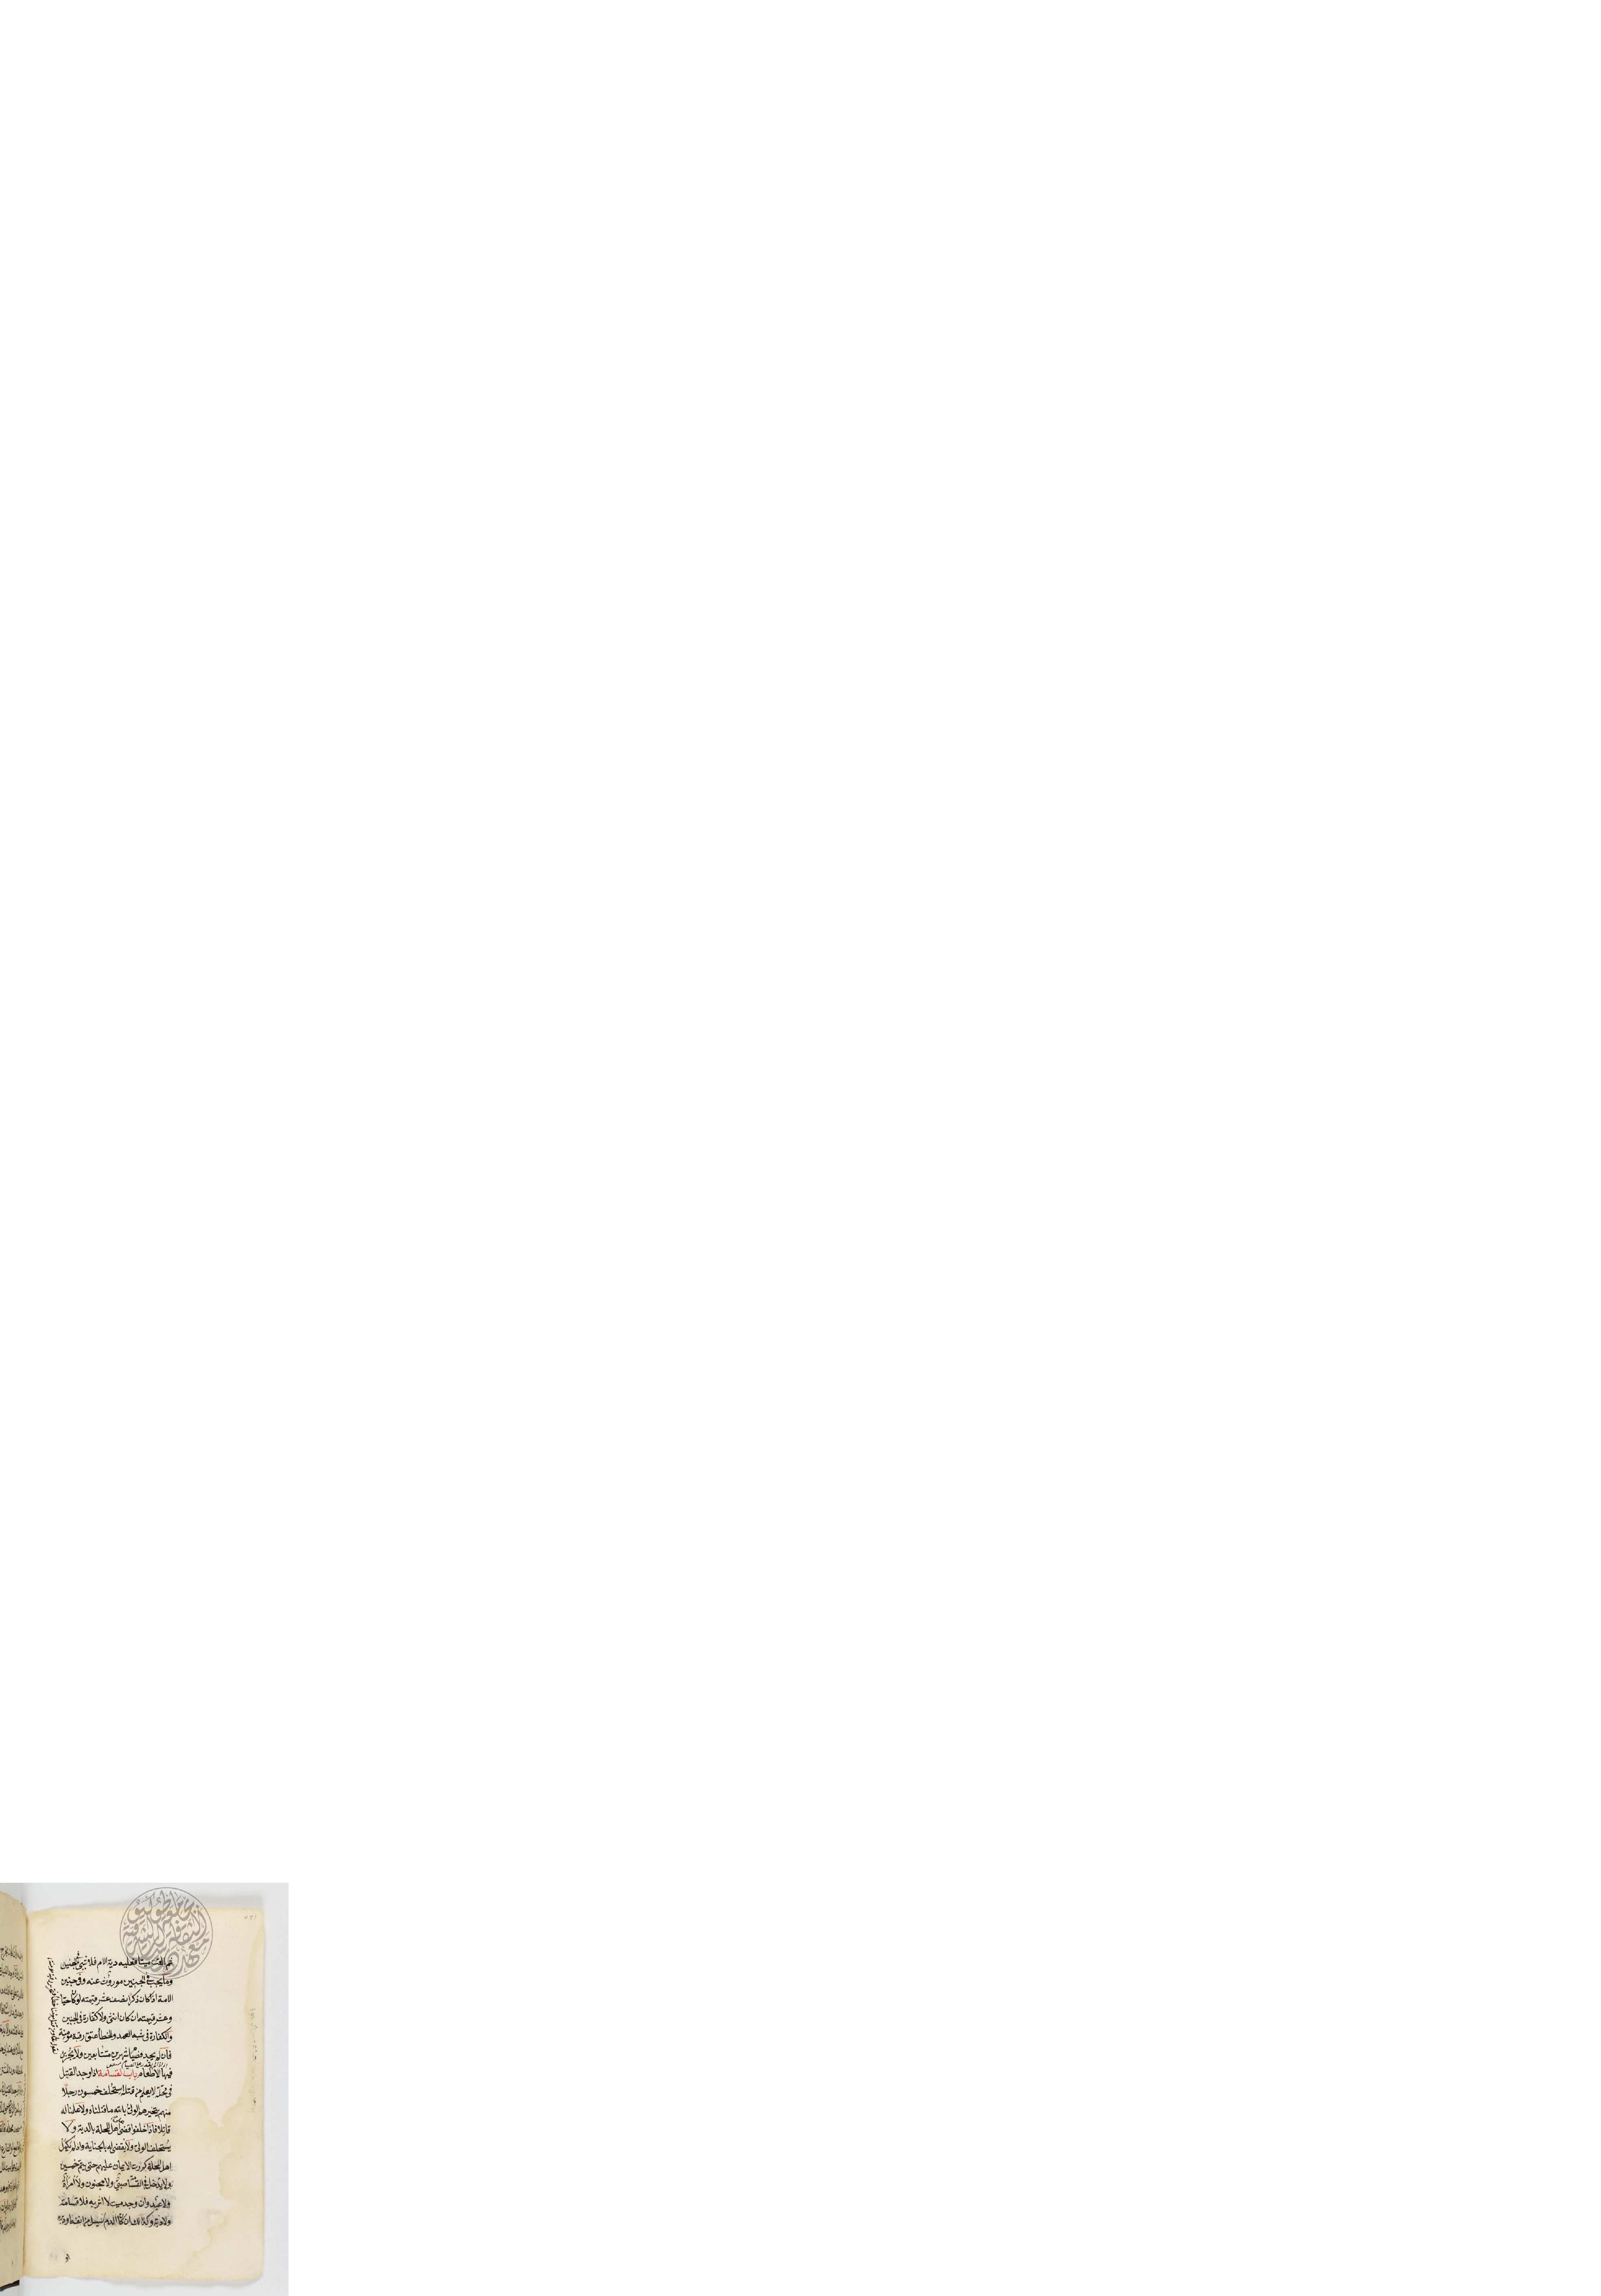 ثم القت ميتا فعليه دية الام فلا شئ في الجنين
وما يجب في الجنين موروث عنه وفي جنين
الامة اذا كان ذكرا نصف عشر قيمته لو كان حيا
وعشر قيمته ان كان انثى ولا كفارة في الجنين
والكفارة في شبه العمد والخطأ عتق رقبة مؤمنة
فان لم يجد فصيام شهرين متتابعين ولا يجزئ
فيها الاطعام باب القسامة اذا وجد القتيل
في محلة لا يعلم من قتله استحلف خمسون رجلا
منهم يتخيرهم الولي بالله ما قتلناه ولا علمنا له
قاتلا فاذا حلفوا قضى على اهل المحلة بالدية ولا
يستحلف الولي ولا يقضى له بالجناية وان لم يكمل
اهل المحلة كررت الايمان عليهم حتى يتم خمسين
ولا يدخل في القسامة صبي ولا مجنون ولا امرأة
ولا عبد وان وجد ميت لا اثر به فلا قسامة
ولا دية وكذلك ان كان الدم يسيل من انفه او دبره